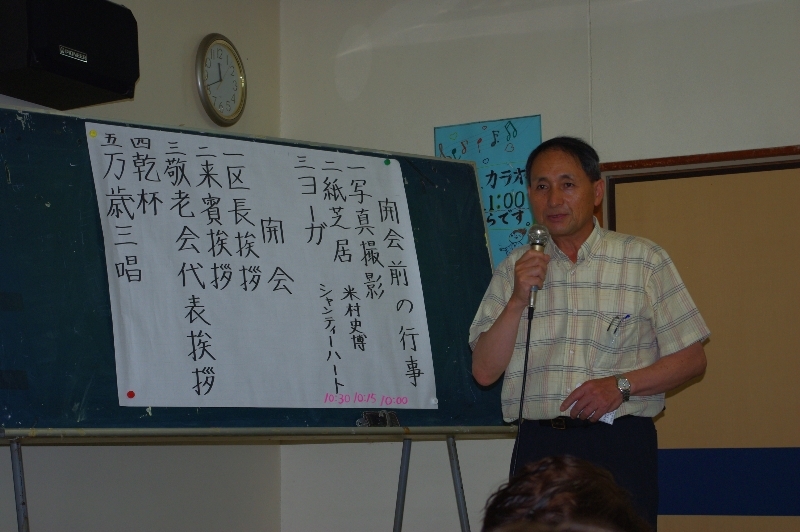 開会前の行事
一写真撮影
二紙芝居 米村史博
三ヨーガ シャンティーハート
10:30 10:15 10:00
開会
一区長挨拶
二来賓挨拶
三敬老会代表挨拶
四乾杯
五万歳三唱
カラオ
1:00
らです
PIONEER